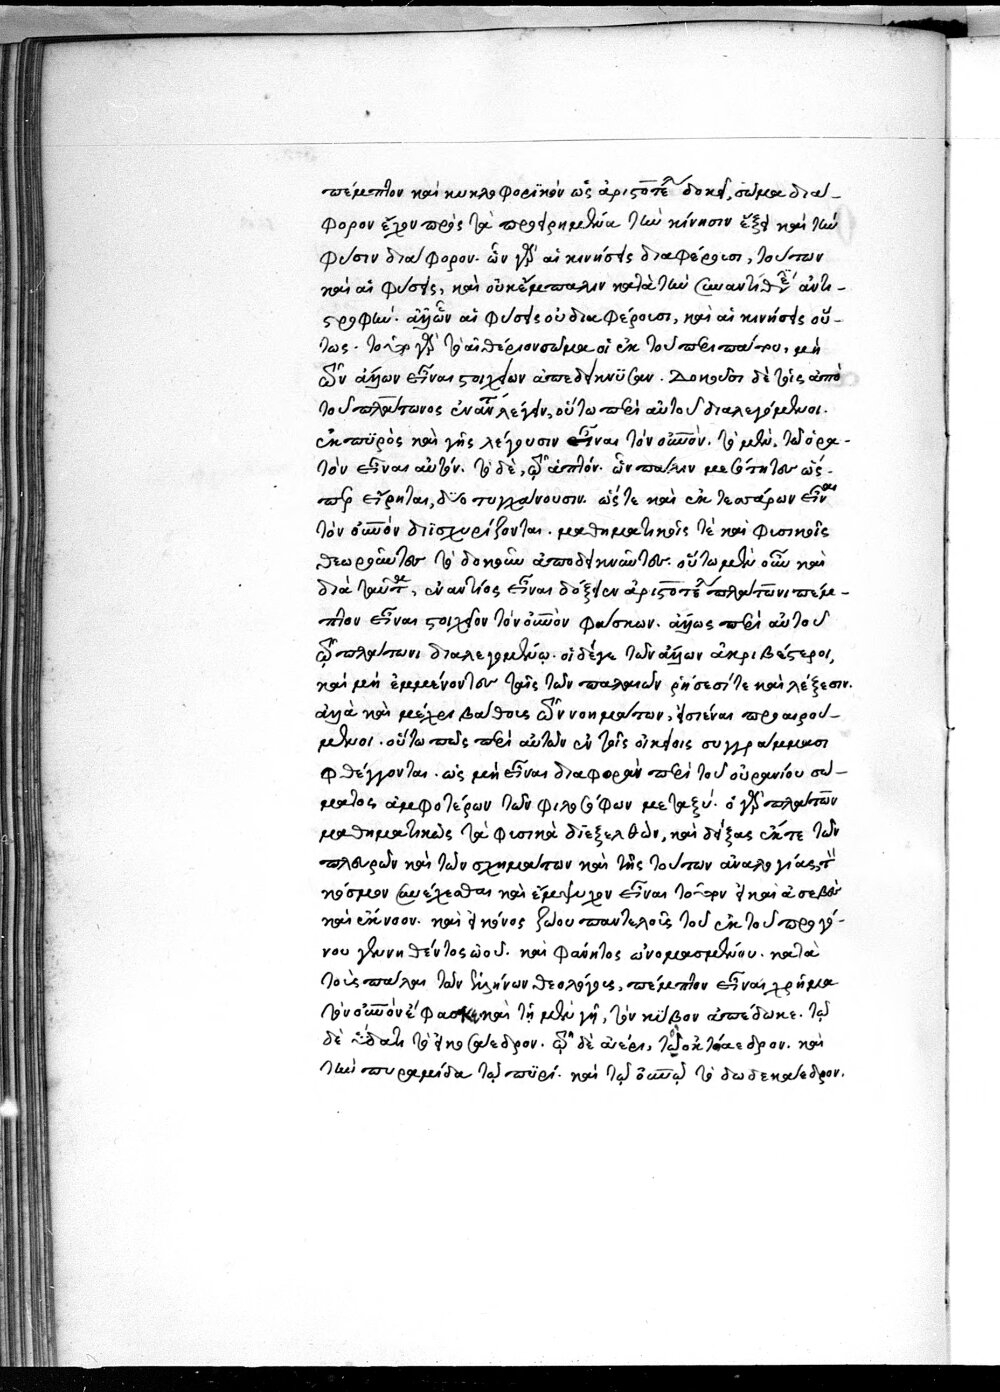 πέμπτον καὶ κυκλοφορϊκὸν ὡς ἀριστοτέλ δοκεῖ, σῶμα διά-
φορον ἔχον πρὸς τὰ προειρημένα τὴν κίνησιν ἕξει καὶ τὴν
φύσιν διάφορον. ὧν γὰρ αἱ κινήσεις διαφέρουσι, τούτων
καὶ αἱ φύσεις, καὶ οὐκ ἔμπαλιν κατὰ τὴν συναντιθέσει ἀντι-
στροφήν. ἀλλ' ὧν αἱ φύσεις οὐ διαφέρουσι, καὶ αἱ κινήσεις οὕ-
τως. τοίνυν γὰρ τὸ αἰθέριον σῶμα οἱ ἐκ τοῦ περιπάτου, μὴ
τῶν ἄλλων εἶναι στοιχείων ἀπεδείκνυσαν. Δοκοῦσι δὲ τοῖς ἀπὸ
τοῦ πλάτωνος ἐναντί λέγειν, οὕτω περὶ αὐτοῦ διαλεγόμενοι.
ἐκ πϋρὸς καὶ γῆς λέγουσιν εἶναι τὸν οὐνὸν. τὸ μὲν, τῶ ὁρα-
τὸν εἶναι αὐτόν. τὸ δὲ, τῶ ἁπτόν. ὧν πάλιν μεσότητες ὥσ-
περ εἴρηται, δύο τυγχάνουσιν. ὥστε καὶ ἐκ τεσσάρων εἶναι
τὸν οὐνὸν διϊσχυρίζονται. μαθηματικοῖς τὲ καὶ φυσικοῖς
θεωροῦντες τὸ δοκοῦν ἀποδεικνῦντες. οὕτω μὲν οὖν καὶ
διὰ ταῦτα, ἐναντίος εἶναι δόξειεν ἀριστοτέλ πλάτωνι πέμ-
πτον εἶναι στοιχεῖον τὸν οὐνὸν φάσκων. ἄλλως περὶ αὐτοῦ
τῶ πλάτωνι διαλεγομένω. οἱ δέγε τῶν ἄλλων ἀκριβέστεροι,
καὶ μὴ ἐμμένοντες ταῖς τῶν παλαιῶν ῥήσεσί τε καὶ λέξεσιν.
ἀλλὰ καὶ μέχρι βάθους τῶν νοημάτων, εἰσιέναι προαιρού-
μενοι. οὕτω πῶς περὶ αὐτῶν ἐν τοῖς οἰκείοις συγγράμμασι
φθέγγονται. ὡς μὴ εἶναι διαφορὰν περὶ τοῦ οὐρανίου σώ-
ματος ἀμφοτέρων τῶν φιλοσόφων μεταξύ. ὁ γὰρ πλάτων
μαθηματικῶς τὰ φυσικὰ διεξελθὼν, καὶ δείξας ἔκ τε τῶν
πλευρῶν καὶ τῶν σχημάτων καὶ τῆς τούτων ἀναλογίας, τὸν
κόσμον συνέχεσθαι καὶ ἔμψυχον εἶναι καὶ ἀσεβοῦ
καὶ ἔννοον. καὶ εἰκόνος ζώου παντελοῦς τοῦ ἐκ τοῦ προγό-
νου γεννηθέντος ὠοῦ. καὶ φάνητος ὠνομασμένου. κατὰ
τοὺς πάλαι τῶν ἑλλήνων θεολόγους, πέμπτον εἶναι χρῆμα
τὸν οὐνὸν ἔφασκε, καὶ τῆ μὲν γῆ, τὸν κύβον ἀπέδωκε. τῶ
δὲ ὕδατι τὸ εἰκοσάεδρον. τῶ δὲ ἀέρι, τὸ ὀκτάεδρον. καὶ
τὴν πυραμίδα τῶ πϋρί. καὶ τῶ οὐνῶ τὸ δωδεκάεδρον.